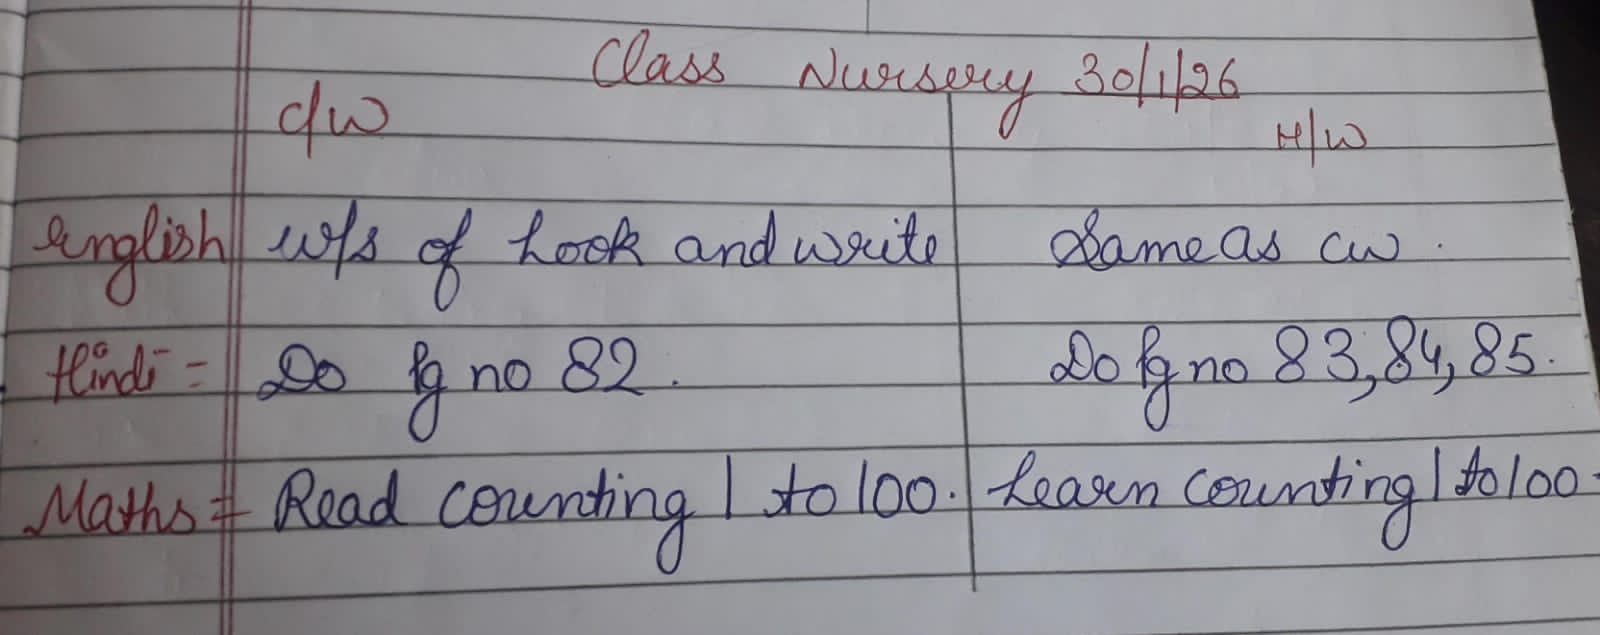 Class Nursery 30/1/26
c/w H/W
English w/s of Look and write Same as cw.
Hindi = Do pg no 82. Do pg no 83, 84, 85.
Maths = Read counting 1 to 100. Learn counting 1 to 100.